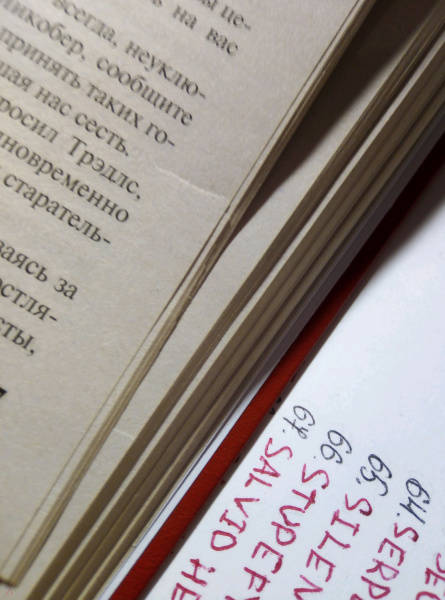 на вас
всегда, неуклю-
икобер, сообщите
принять таких го-
шая нас сесть.
росил Трэдлс,
дновременно
старатель-
ваясь за
остля-
сты,
64. SERPE
65. SILEN
66. STUPEFY
67. SALVIO HE